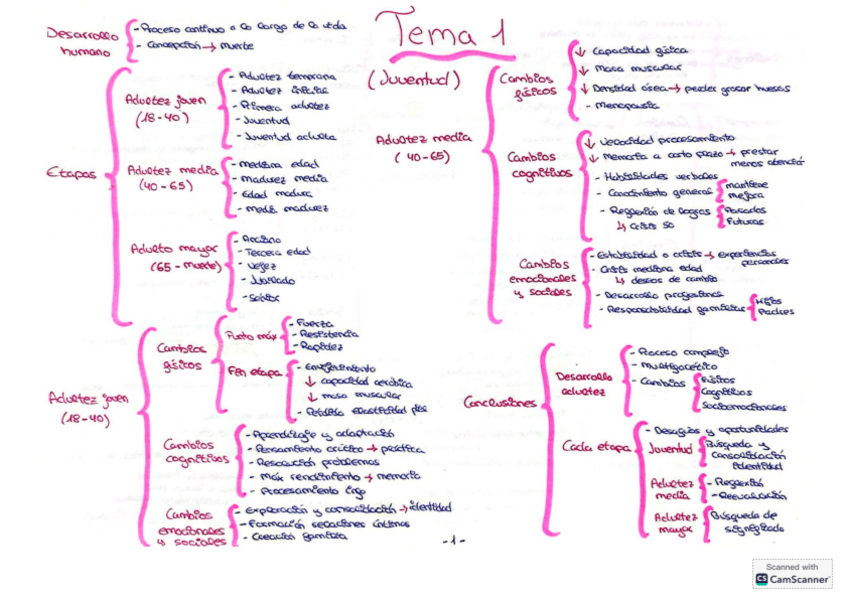 Tema 1
Desarrollo humano
- Proceso continuo a lo largo de la vida
- Concepción → muerte
Etapas
Adultez joven (18-40)
- Adultez temprana
- Adultez inicial
- Primera adultez
- Juventud
- Juventud adulta
Adultez media (40-65)
- mediana edad
- madurez media
- Edad madura
- media madurez
Adulto mayor (65-muerte)
- Anciano
- Tercera edad
- Vejez
- Jubilado
- Senior
Adultez joven (18-40)
Cambios físicos
Punto máx
- Fuerza
- Resistencia
- Rapidez
Fin etapa
- Envejecimiento
↓ capacidad aeróbica
↓ masa muscular
- Pérdida elasticidad piel
Cambios cognitivos
- Aprendizaje y adaptación
- Pensamiento crítico → práctica
- Resolución problemas
- Máx rendimiento → memoria
- Procesamiento info
Cambios emocionales y sociales
- Exploración y consolidación → identidad
- Formación relaciones íntimas
- Creación familia
(Juventud)
Adultez media (40-65)
Cambios físicos
↓ Capacidad física
↓ Masa muscular
↓ Densidad ósea → perder grosor huesos
- Menopausia
Cambios cognitivos
↓ Velocidad procesamiento
↓ Memoria a corto plazo → prestar menos atención
- Habilidades verbales
- Conocimiento general
mantiene
mejora
- Reflexión de logros
Pasados
Futuros
↳ Crisis 50
Cambios emocionales y sociales
- Estabilidad o crisis → experiencias personales
- Crisis mediana edad
↳ deseos de cambio
- Desarrollo profesional
- Responsabilidad familiar
Hijos
Padres
Conclusiones
Desarrollo adultez
- Proceso complejo
- Multifacético
- Cambios
Físicos
Cognitivos
Socioemocionales
Cada etapa
- Desafíos y oportunidades
Juventud
Búsqueda y consolidación identidad
Adultez media
- Reflexión
- Reevaluación
Adultez mayor
Búsqueda de significado
-1-
Scanned with
CS CamScanner